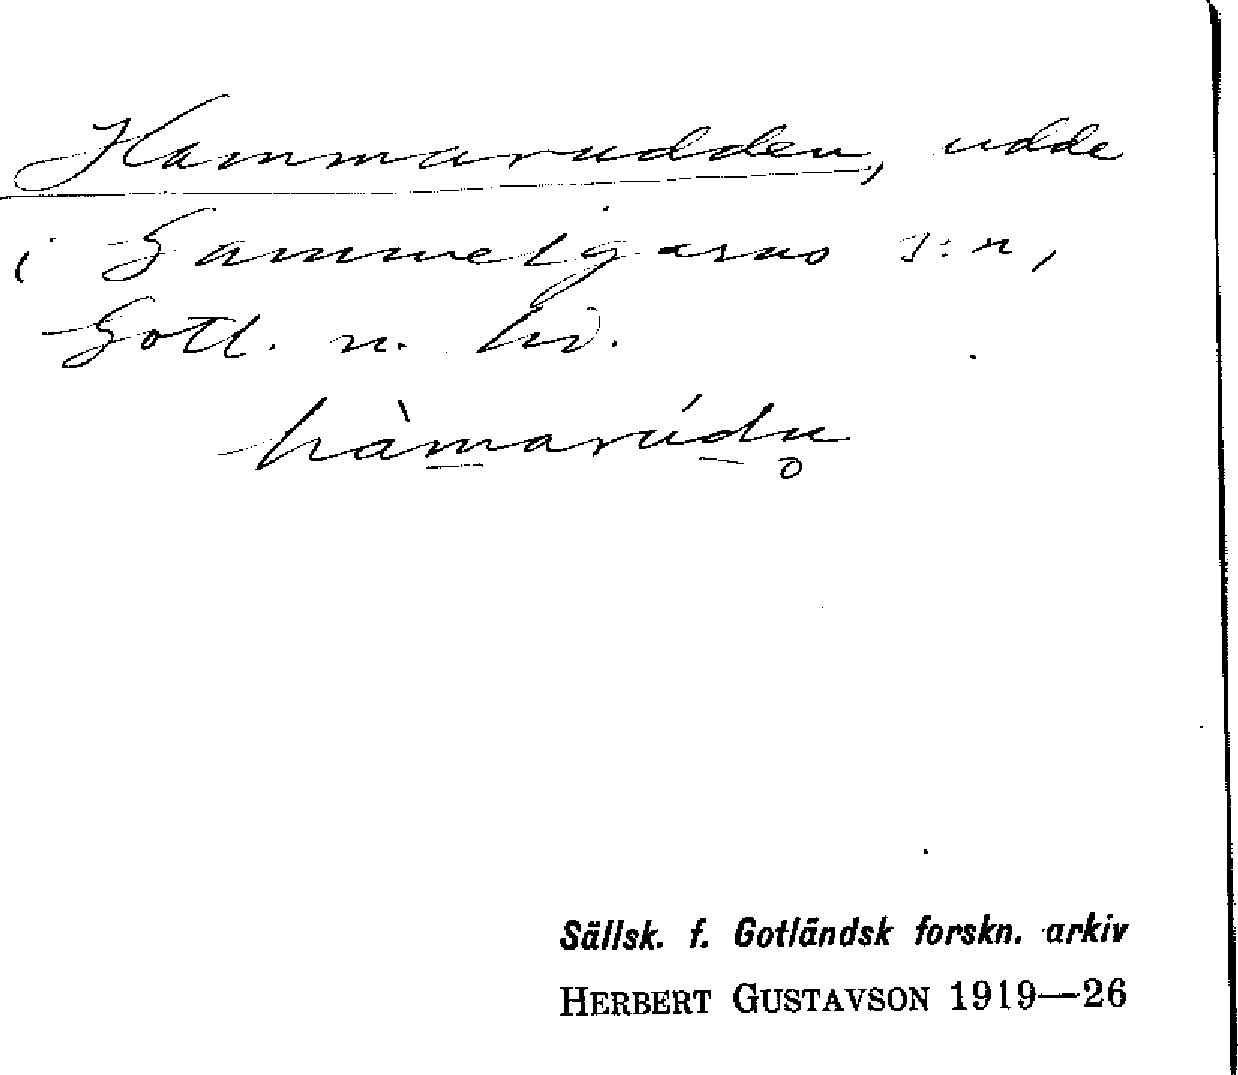 Hammarudden, udde
i Gammelgarns s:n,
Gotl. n. hd.
hàm̲arúd̲n̥
Sällsk. f. Gotländsk forskn. arkiv
HERBERT GUSTAVSON 1919—26